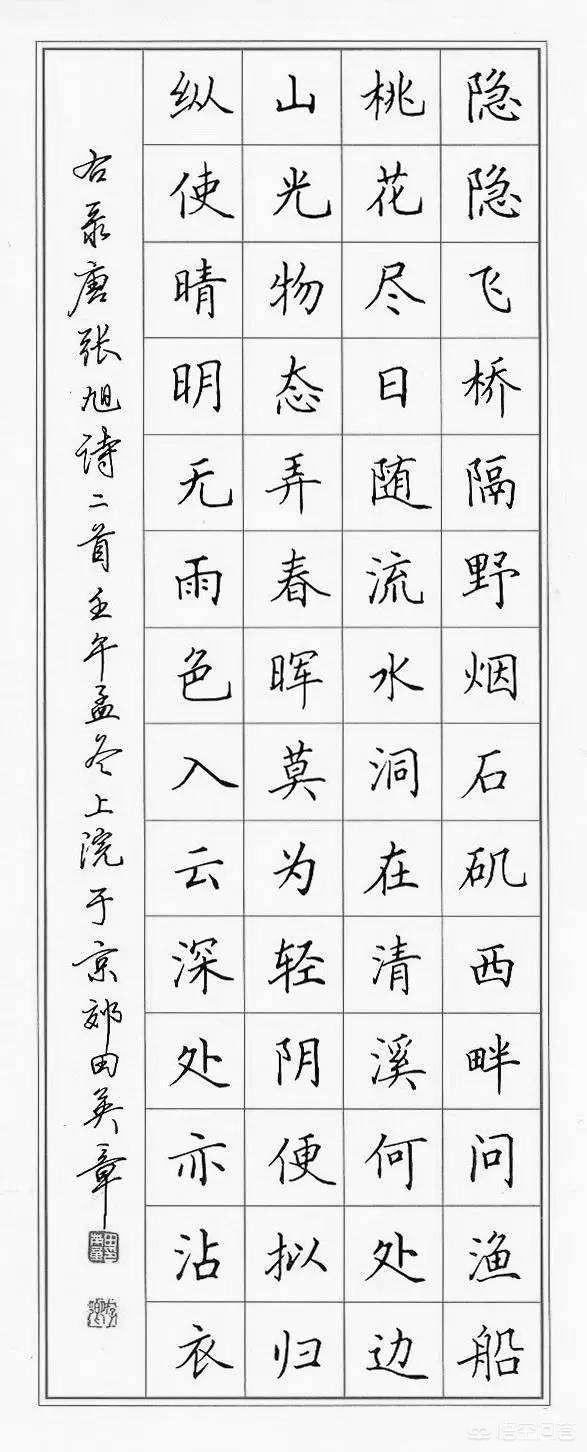 隐隐飞桥隔野烟石矶西畔问渔船
桃花尽日随流水洞在清溪何处边
山光物态弄春晖莫为轻阴便拟归
纵使晴明无雨色入云深处亦沾衣
右录唐张旭诗二首壬午孟冬上浣于京郊田英章
悟空问答